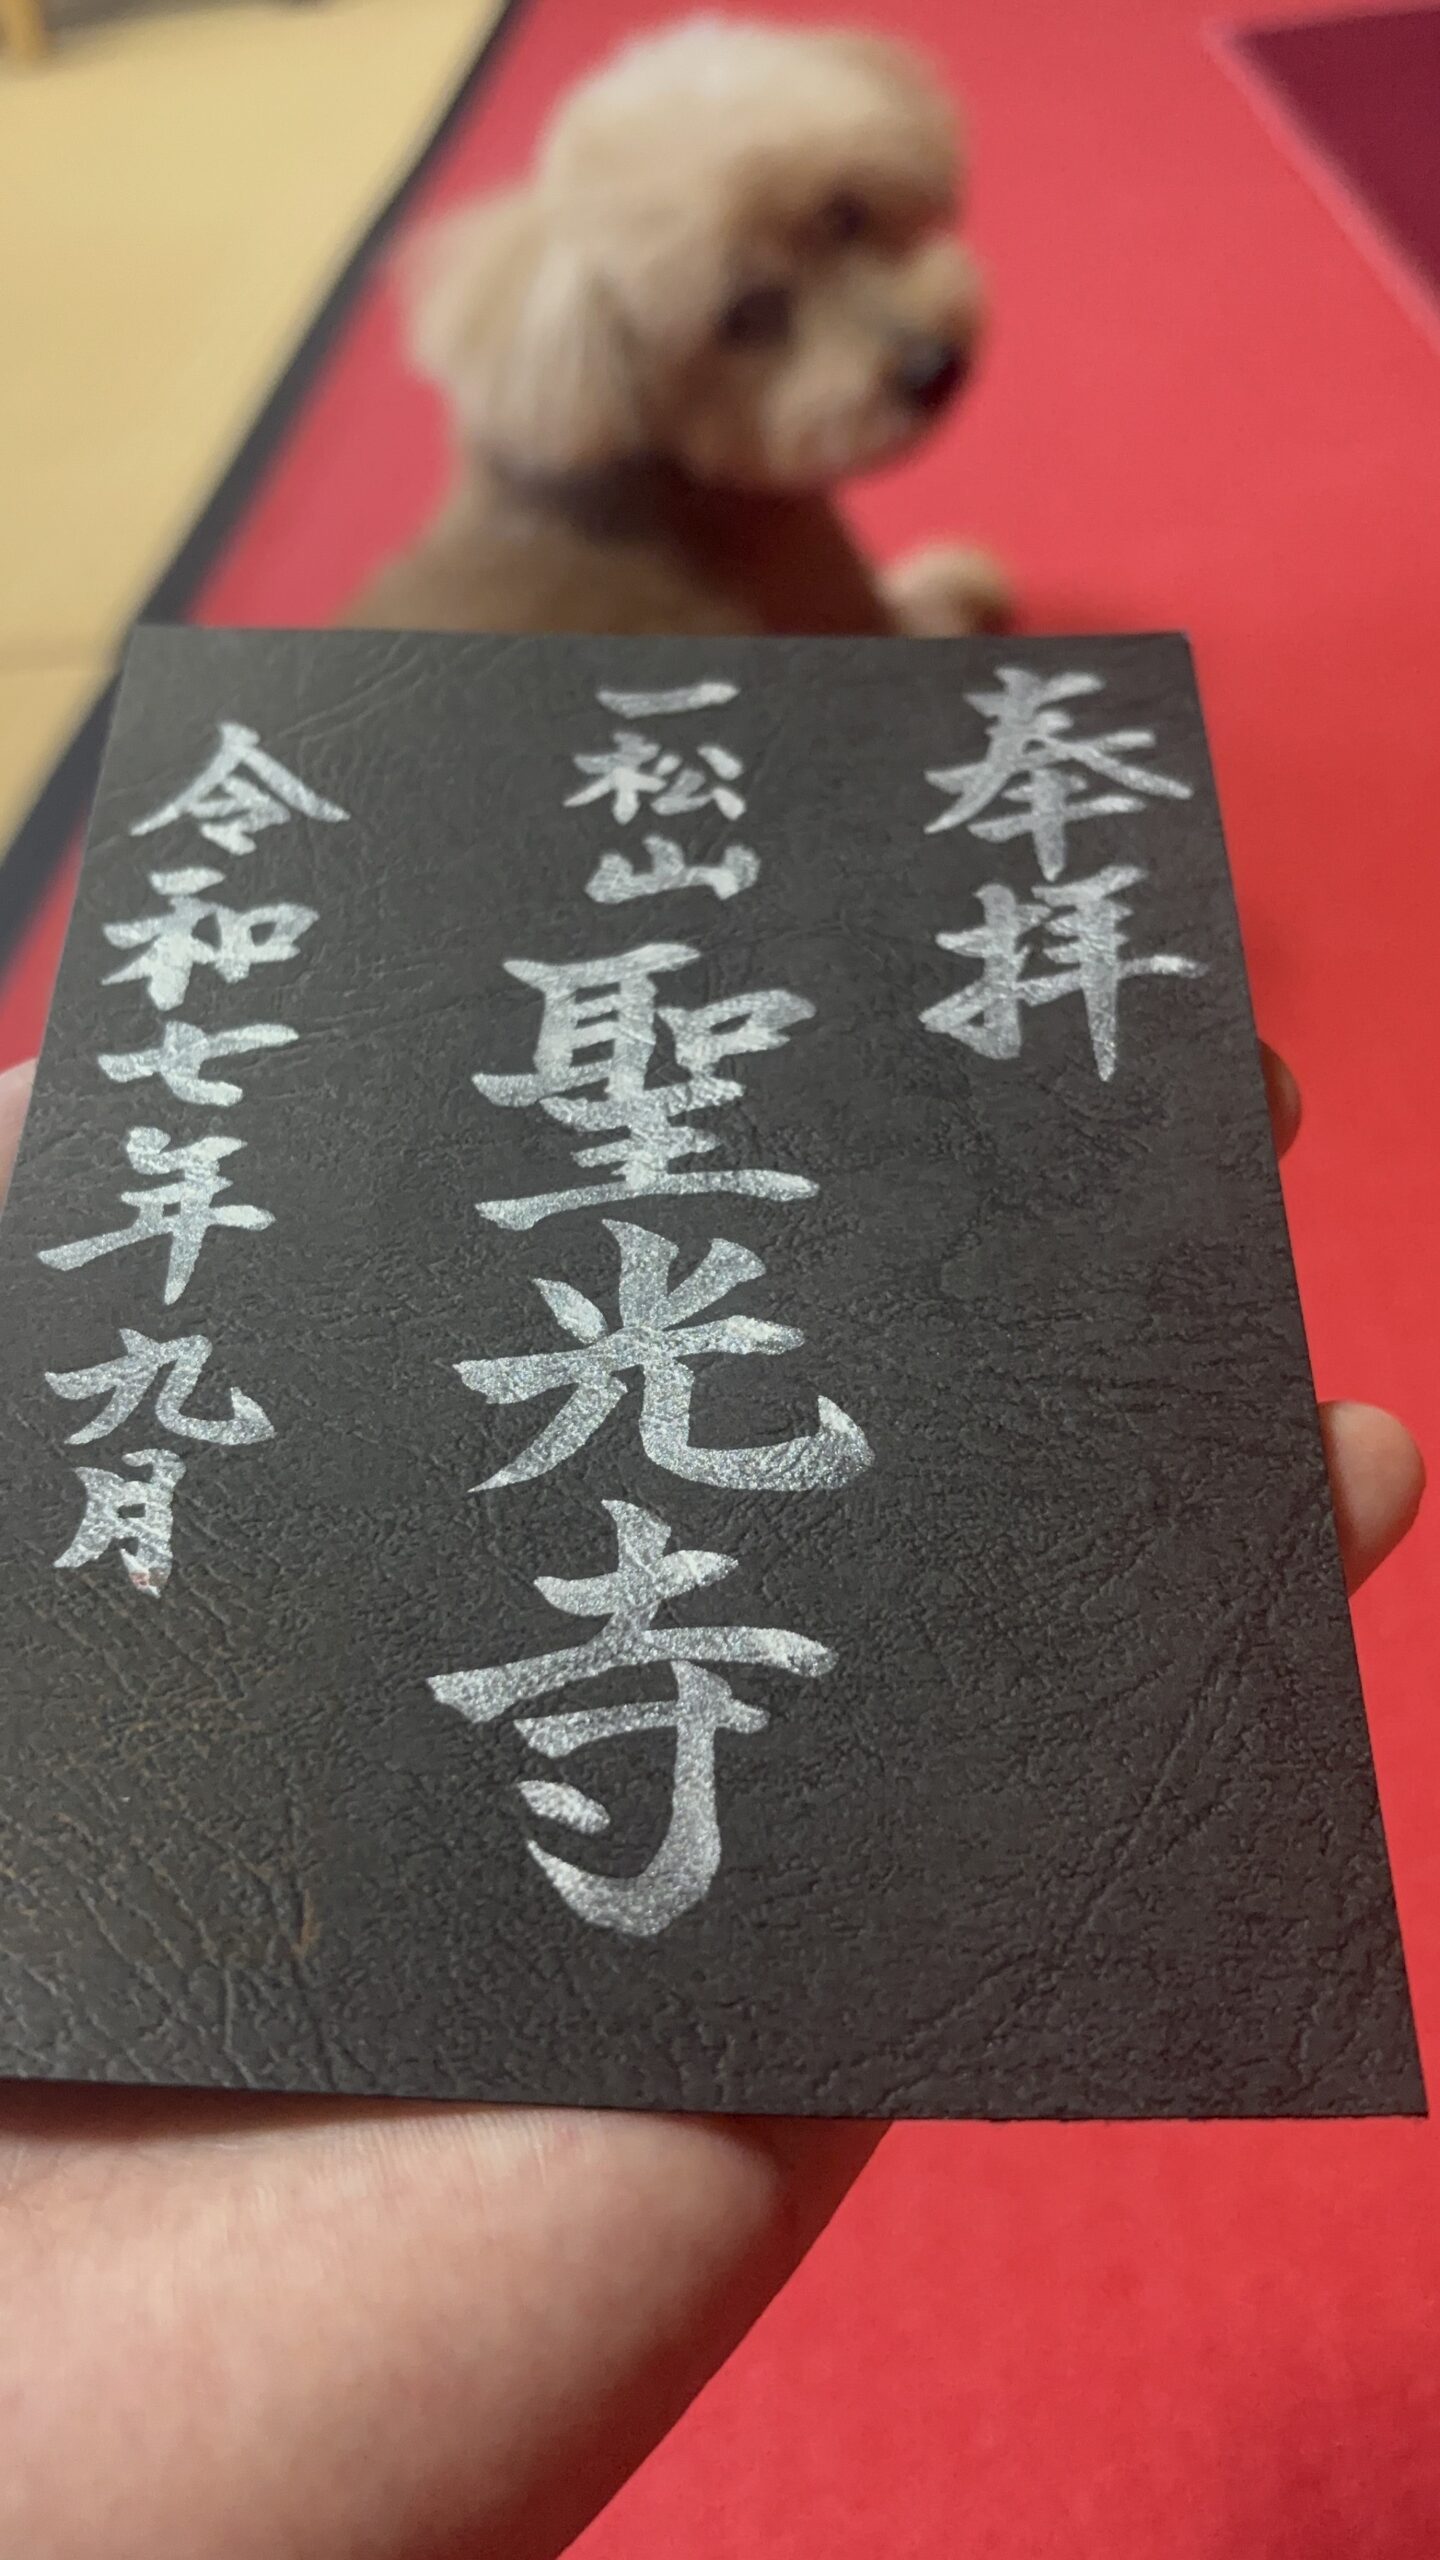 奉拝
一松山
聖光寺
令和七年九月